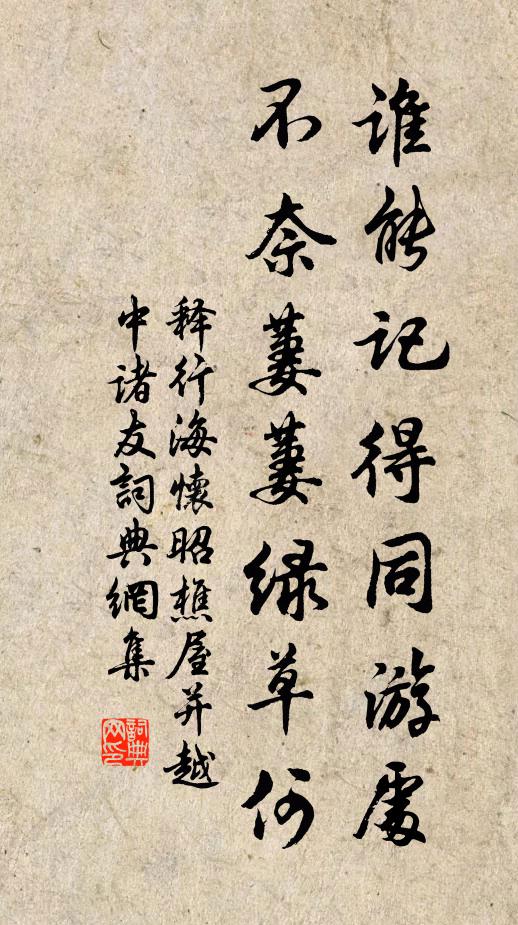 誰能記得同游處
不奈萋萋綠草何
释行海懷昭樵屋并越
中诸友詞典網集
詞典
网印